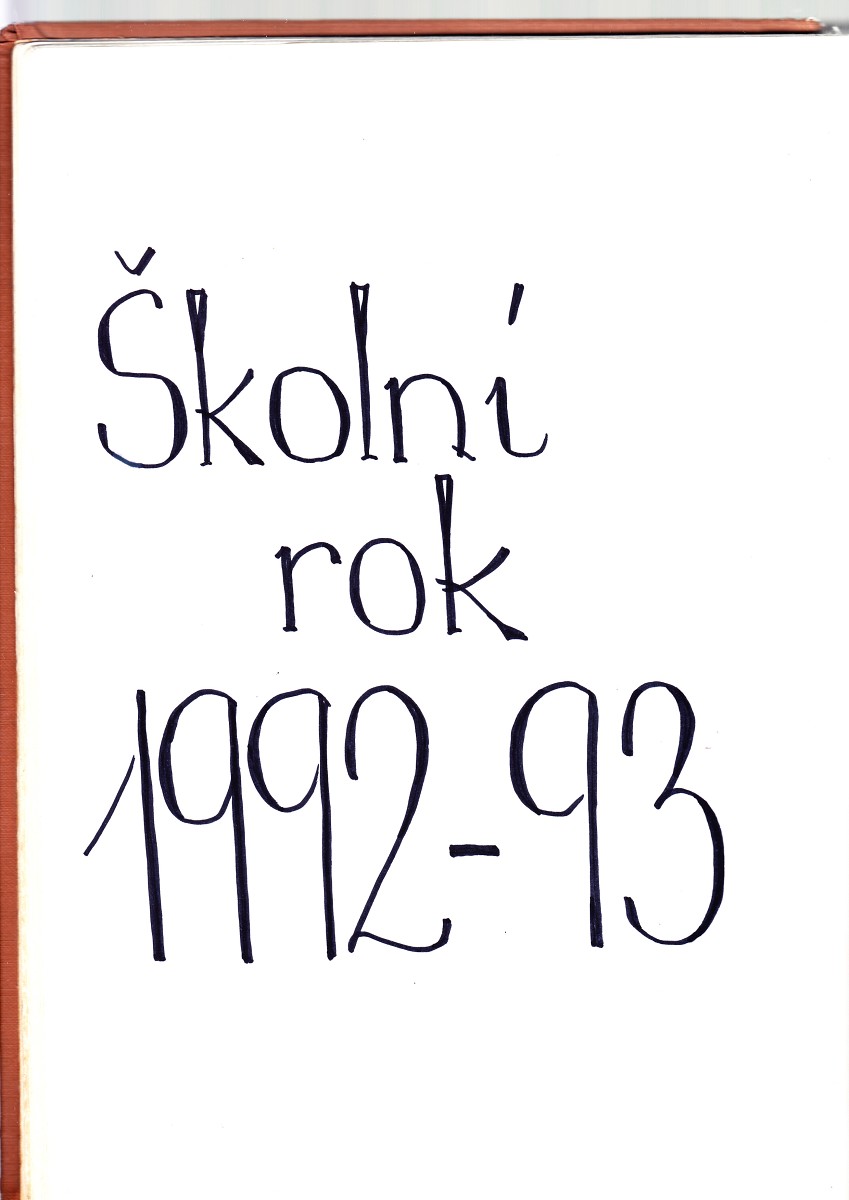 Školní
rok
1992-93